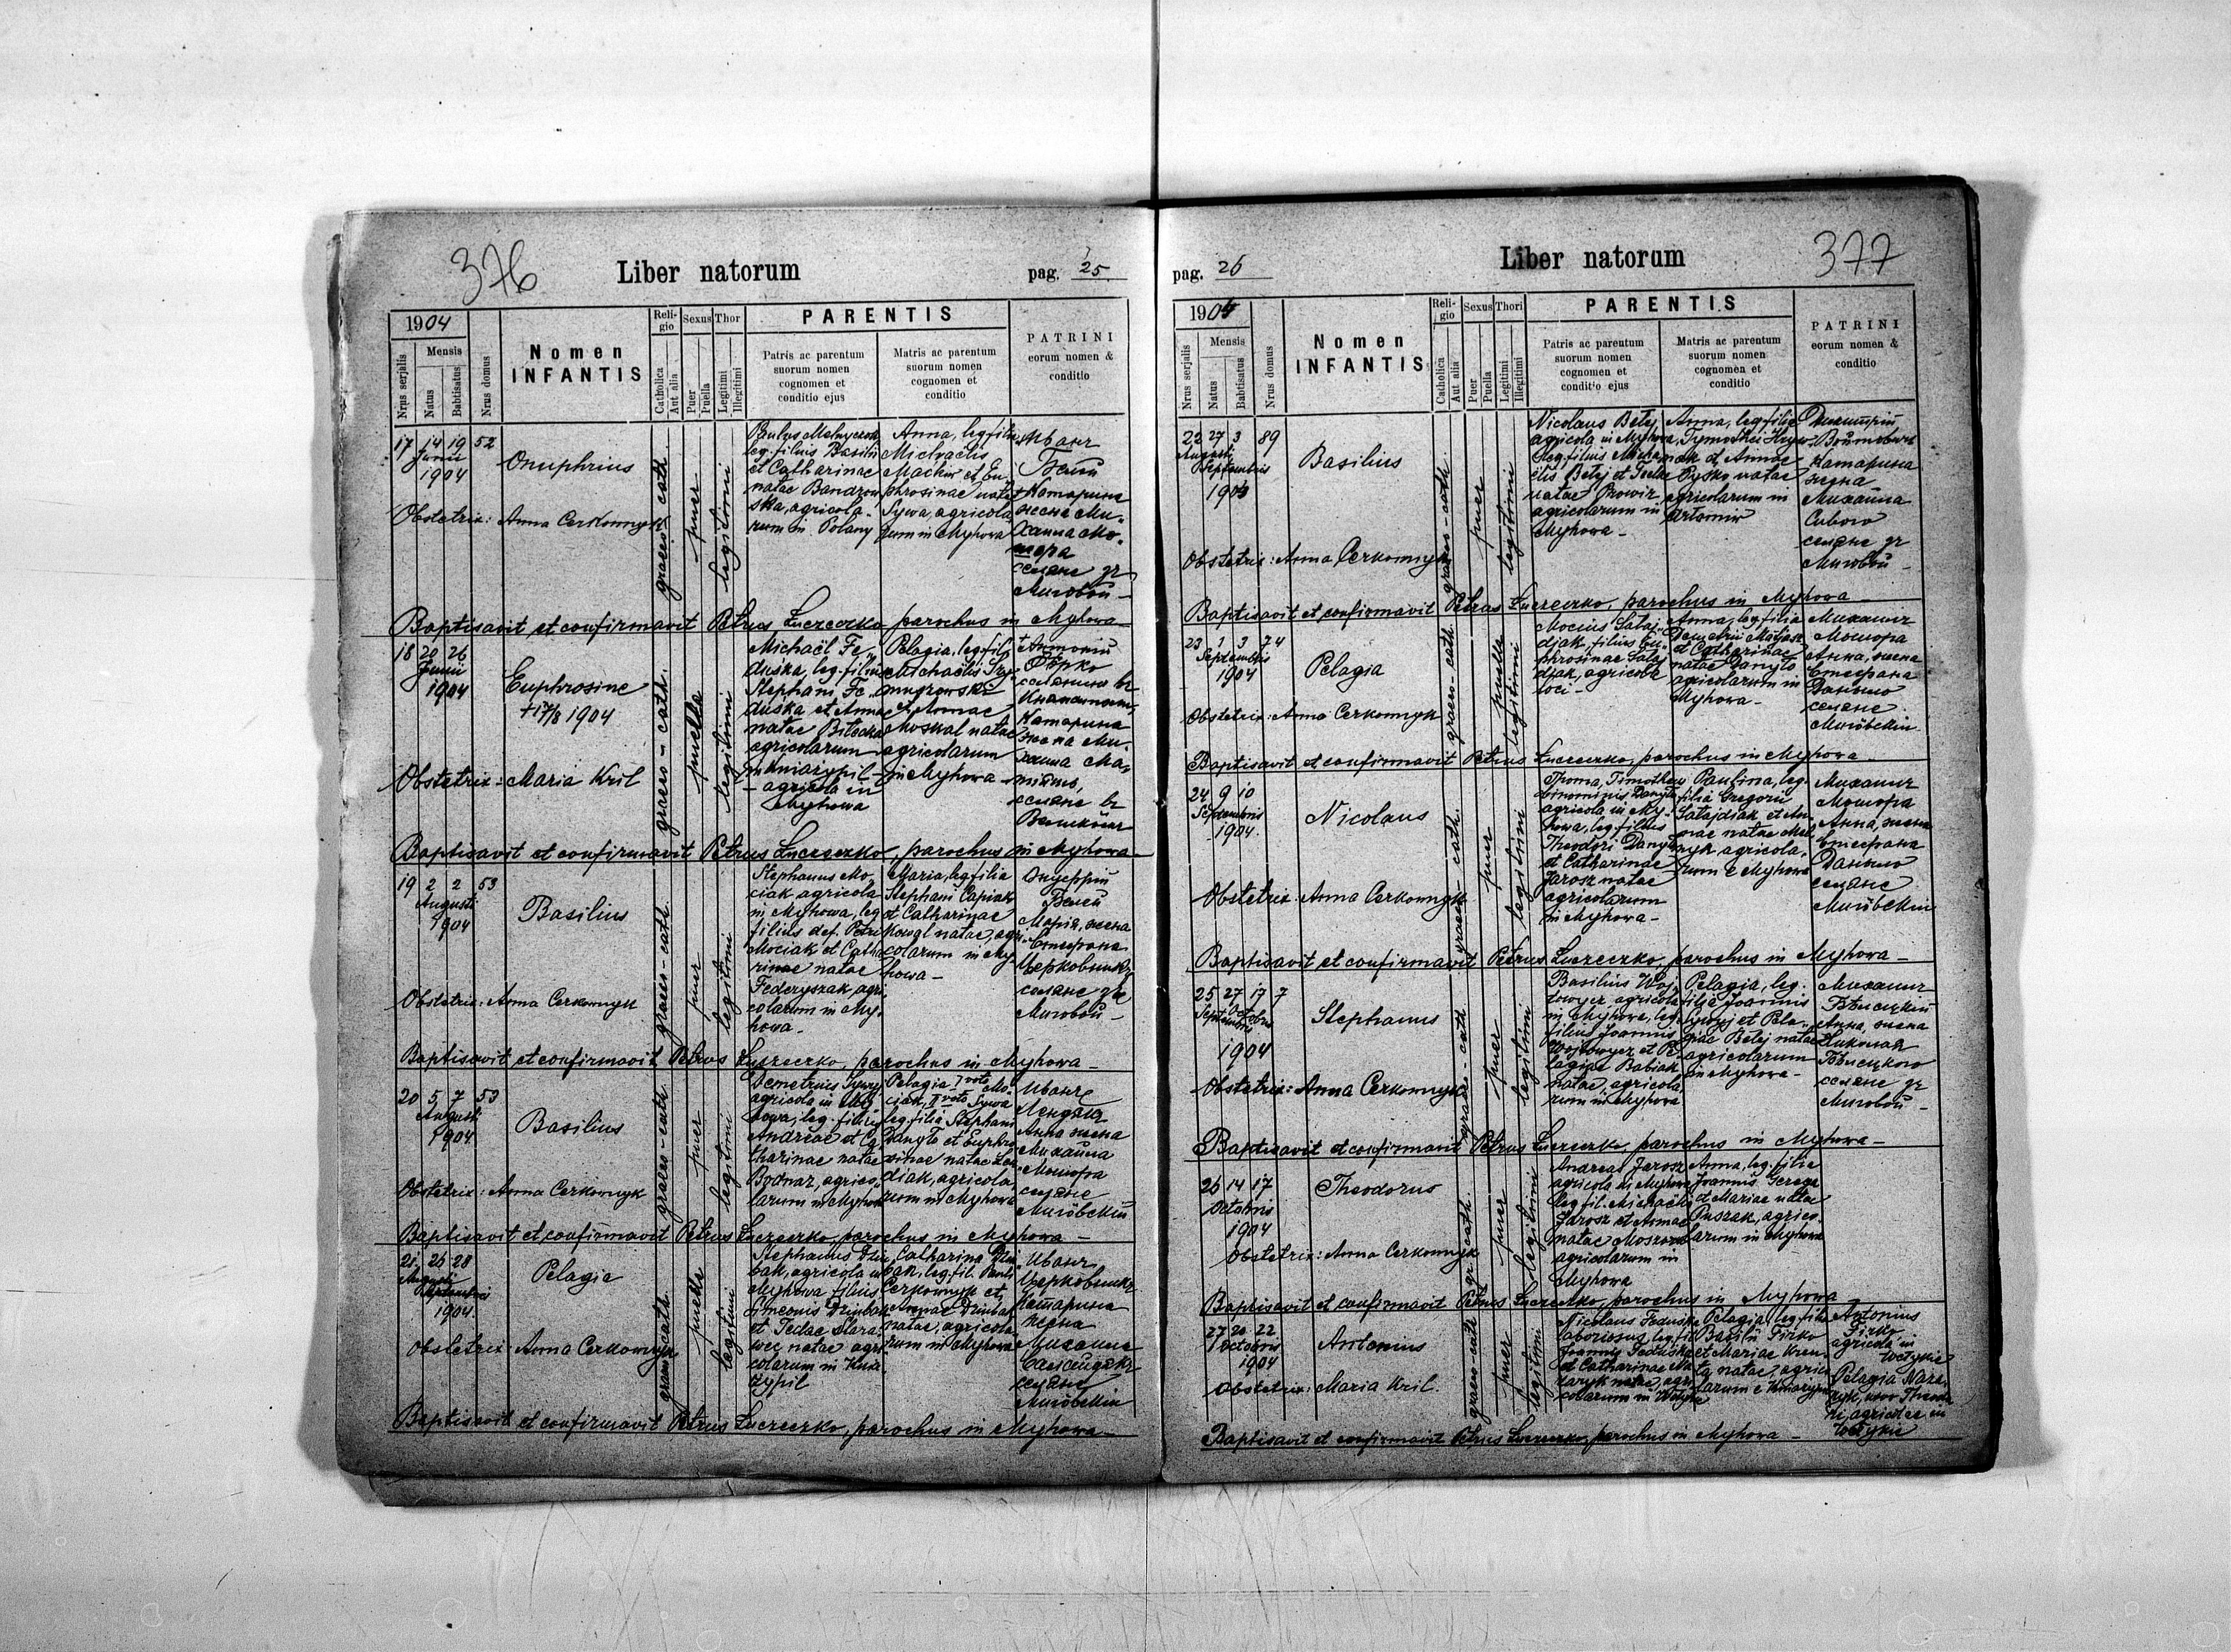 376
Liber natorum
pag. 25
1904
Nrus serjalis
Mensis
Natus
Babtisatus
Nrus domus
Nomen
INFANTIS
Religio
Catholica
Aut alia
Sexus
Puer
Puella
Thor
Legitimi
Illegitimi
PARENTIS
Patris ac parentum
suorum nomen
cognomen et
conditio ejus
Matris ac parentum
suorum nomen
cognomen et
conditio
PATRINI
eorum nomen &
conditio
17 14 19 52
Junii
1904
Onuphrius
Obstetrix: Anna Cerkownyk
graeco-cath.
puer
legitimi
leg. filius Basilii
et Catharinae
natae
ska, agricola-
rum in Polany
Anna, leg. filia
Michaelis
et Eu-
phrosinae natae
Sywa, agricola-
rum in Myhowa
Иванъ
Белей
Катарина
жена Ми-
хаила Мо-
шора
селяне зъ
Миговои
Baptisavit et confirmavit Petrus Luczeczko parochus in Myhowa
18 20 26
Junii
1904
Euphrosine
+17/8 1904
Obstetrix: Maria Kril
graeco-cath.
puella
legitimi
Michaël Fe-
duska, leg. filius
Stephani Fe-
duska et Annae
natae
agricolarum
agricola in
Myhowa
Pelagia, leg. fil.
Michaëlis
et Annae
Moskal natae
agricolarum
in Myhowa
Антоній
Фѣрко
селянинъ въ
Катарина
жена Ми-
хаила Ма-
селяне въ
Baptisavit et confirmavit Petrus Luczeczko, parochus in Myhowa
19 2 2 53
Augusti
1904
Basilius
Obstetrix: Anna Cerkownyk
graeco-cath.
puer
legitimi
Stephanus Mo-
ciak agricola
in Myhowa, leg.
filius def. Petri
Mociak et Catha-
rinae natae
Federyszak, agri-
colarum in My-
howa
Maria, leg. filia
Stephani Capiak
et Catharinae
Kowal natae, agri-
colarum in My-
howa
Онуфрій
Белей
Марія, жена
Стефана
Церковникъ
селяне зъ
Миговои
Baptisavit et confirmavit Petrus Luczeczko, parochus in Myhowa
20 5 7 53
Augusti
1904
Basilius
Obstetrix: Anna Cerkownyk
graeco-cath.
puer
legitimi
Demetrius Sywy
agricola in My-
howa, leg. filius
Andreae et Ca-
tharinae natae
Bodnar, agrico-
larum in Myhowa
Pelagia I voto Mo-
ciak, II voto Sywa
leg. filia Stephani
Danyło et Euphro-
sinae natae
diak, agricola-
rum in Myhowa
Иванъ
Анна жена
Михаила
Мошора
селяне
Миговскіи
Baptisavit et confirmavit Petrus Luczeczko, parochus in Myhowa
21 26 28
Augusti
1904
Pelagia
Obstetrix: Anna Cerkownyk
graeco-cath.
puella
legitimi
Stephanus Dziu-
bak, agricola in
Myhowa filius
Simeonis Dziubak
et Teclae Stara-
wec natae agri-
colarum in Knia-
żypil
Catharina Dziu-
bak, leg. fil. Pauli
Cerkownyk et
Annae Dziubak
natae, agricola-
rum in Myhowa
Иванъ
Церковникъ
Катарина
жена
Михаила
селяне
Миговскіи
Baptisavit et confirmavit Petrus Luczeczko, parochus in Myhowa
pag. 26
Liber natorum
377
1904
Nrus serjalis
Mensis
Natus
Babtisatus
Nrus domus
Nomen
INFANTIS
Religio
Catholica
Aut alia
Sexus
Puer
Puella
Thori
Legitimi
Illegitimi
PARENTIS
Patris ac parentum
suorum nomen
cognomen et
conditio ejus
Matris ac parentum
suorum nomen
cognomen et
conditio
PATRINI
eorum nomen &
conditio
22 27 3 89
Augusti
Septembris
1904
Basilius
Obstetrix: Anna Cerkownyk
graeco-cath.
puer
legitimi
Nicolaus Belej
agricola in Myhowa,
leg. filius Micha-
elis Belej et Teclae
natae
agricolarum in
Myhowa
Anna, leg. filia
Tymothei
et Annae
Pyśko natae
agricolarum in
Artomiw
Димитрій
Войтовичъ
Катарина
жена
Михаила
Сивого
селяне зъ
Миговои
Baptisavit et confirmavit Petrus Luczeczko, parochus in Myhowa
23 1 3 74
Septembris
1904
Pelagia
Obstetrix: Anna Cerkownyk
graeco-cath.
puella
legitimi
djak, filius Eu-
phrosinae
djak, agricola
loci
Anna, leg. filia
Demetrii Matjasz
et Catharinae
natae Danyło
agricolarum in
Myhowa
Михаилъ
Мошора
Анна, жена
Стефана
Данило
селяне
Миговскіи
Baptisavit et confirmavit Petrus Luczeczko, parochus in Myhowa
24 9 10
Septembris
1904.
Nicolaus
Obstetrix: Anna Cerkownyk
graeco-cath.
puer
legitimi
Thoma, Timotheus
binominis Danyło
agricola in My-
howa, leg. filius
Theodori Danyło
et Catharinae
Jarosz natae
agricolarum
in Myhowa
Paulina, leg.
filia Gregorii
et An-
nae natae Mel-
nyk agricola-
rum e Myhowa
Михаилъ
Мошора
Анна, жена
Стефана
Данило
селяне
Миговскіи
Baptisavit et confirmavit Petrus Luczeczko, parochus in Myhowa
25 27 17 7
Septembris Octobris
1904
Stephanus
Obstetrix: Anna Cerkownyk
graeco-cath.
puer
legitimi
Basilius Woj-
towycz, agricola
in Myhowa, leg.
filius Joannis
Wojtowycz et Pe-
lagiae Babiak
natae, agricola-
rum in Myhowa
Pelagia, leg.
filia Joannis
et Pela-
giae Belej natae
agricolarum
in Myhowa
Михаилъ
Бѣлецкій
Анна, жена
Николая
Бѣлецкого
селяне зъ
Миговои
Baptisavit et confirmavit Petrus Luczeczko, parochus in Myhowa
26 14 17
Octobris
1904
Theodorus
Obstetrix: Anna Cerkownyk
gr. cath.
puer
legitimi
Andreas Jarosz
agricola in Myhowa
leg. fil. Michaëlis
Jarosz et Annae
natae
agricolarum in
Myhowa
Anna, leg. filia
Joannis Gerega
et Mariae natae
Puszak, agrico-
larum in Myhowa
Baptisavit et confirmavit Petrus Luczeczko, parochus in Myhowa
27 20 22
Octobris
1904
Antonius
Obstetrix: Maria Kril.
graeco-cath.
puer
legitimi
Nicolaus Feduska
laboriosus, leg. fil.
Joannis Feduska
et Catharinae Na-
zaryk natae, agri-
colarum in
Pelagia, leg. filia
Basilii Firko
et Mariae
natae, agrico-
larum e
Antonius
Firko
agricola in
Pelagia Naza-
ryk, uxor Theodo-
ri, agricolae in
Baptisavit et confirmavit Petrus Luczeczko, parochus in Myhowa